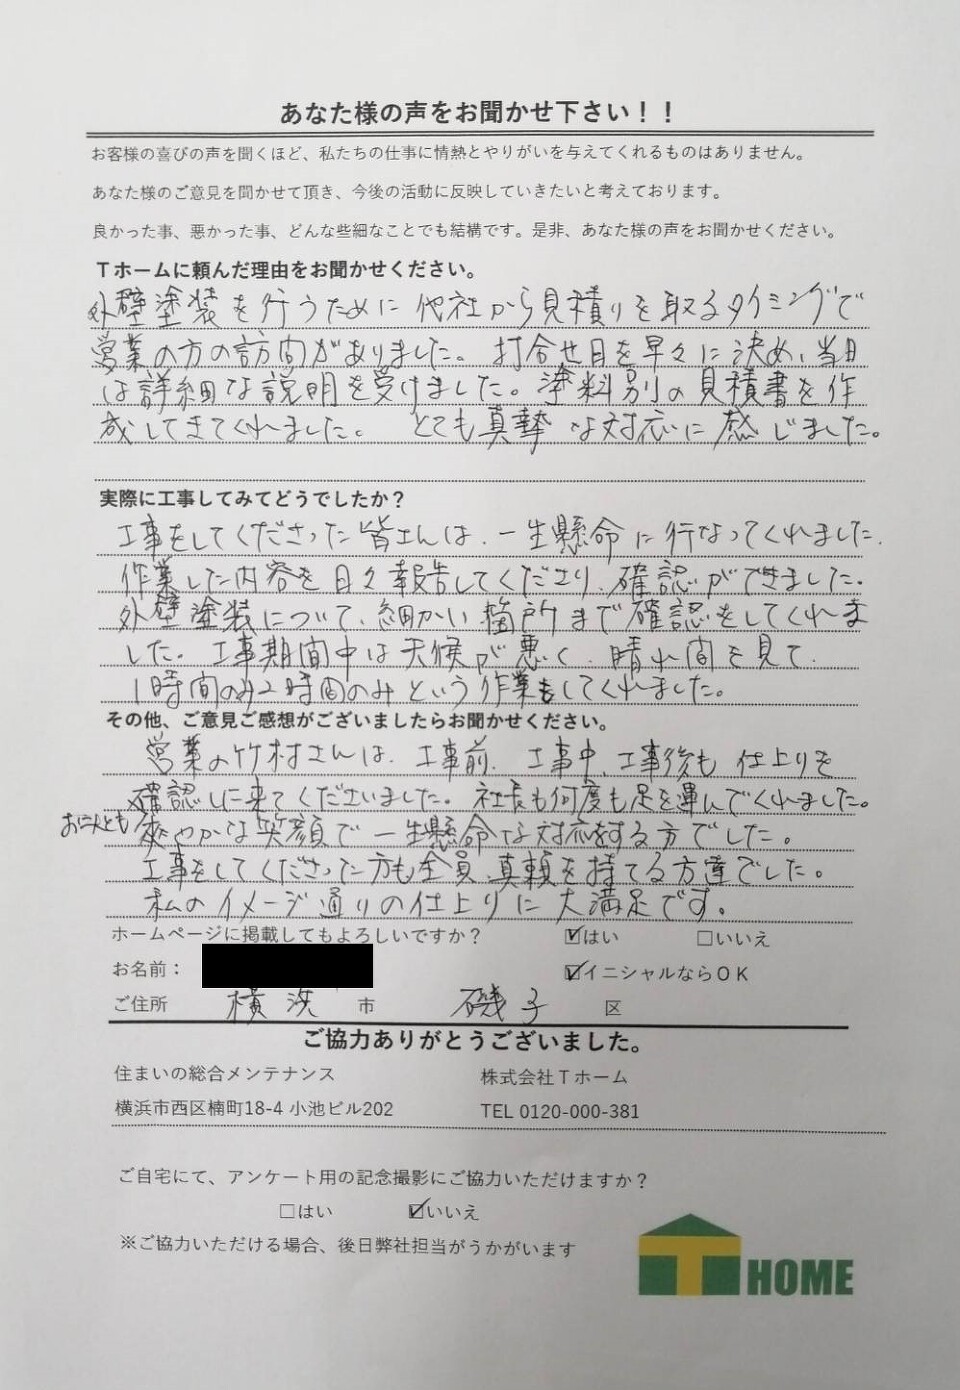 あなた様の声をお聞かせ下さい！！
お客様の喜びの声を聞くほど、私たちの仕事に情熱とやりがいを与えてくれるものはありません。
あなた様のご意見を聞かせて頂き、今後の活動に反映していきたいと考えております。
良かった事、悪かった事、どんな些細なことでも結構です。是非、あなた様の声をお聞かせください。
Ｔホームに頼んだ理由をお聞かせください。
外壁塗装を行うために代社から見積りを取るタイミングで
営業の方の訪問がありました。打合せ日を早々に決め、当日
は詳細な説明を受けました。塗料別の見積書を作
成してきてくれました。とても真摯な対応に感じました。
実際に工事してみてどうでしたか？
工事をしてくださった皆さんは、一生懸命に行なってくれました。
作業した内容を日々報告してくださり、確認ができました。
外壁塗装について、細かい箇所まで確認をしてくれま
した。工事期間中は天候が悪く、晴れ間を見て、
1時間のみ2時間のみという作業もしてくれました。
その他、ご意見ご感想がございましたらお聞かせください。
営業の竹村さんは、工事前、工事中、工事後も仕上りを
確認しに来てくださいました。社長も何度も足を運んでくれました。
お二人とも爽やかな笑顔で一生懸命な対応をする方でした。
工事をしてくださった方も全員、真頼を持てる方達でした。
私のイメージ通りの仕上りに大満足です。
ホームページに掲載してもよろしいですか？ ☑はい □いいえ
お名前： ☑イニシャルならＯＫ
ご住所 横浜市 磯子区
ご協力ありがとうございました。
住まいの総合メンテナンス 株式会社Ｔホーム
横浜市西区楠町18-4 小池ビル202 TEL 0120-000-381
ご自宅にて、アンケート用の記念撮影にご協力いただけますか？
□はい ☑いいえ
※ご協力いただける場合、後日弊社担当がうかがいます
T HOME